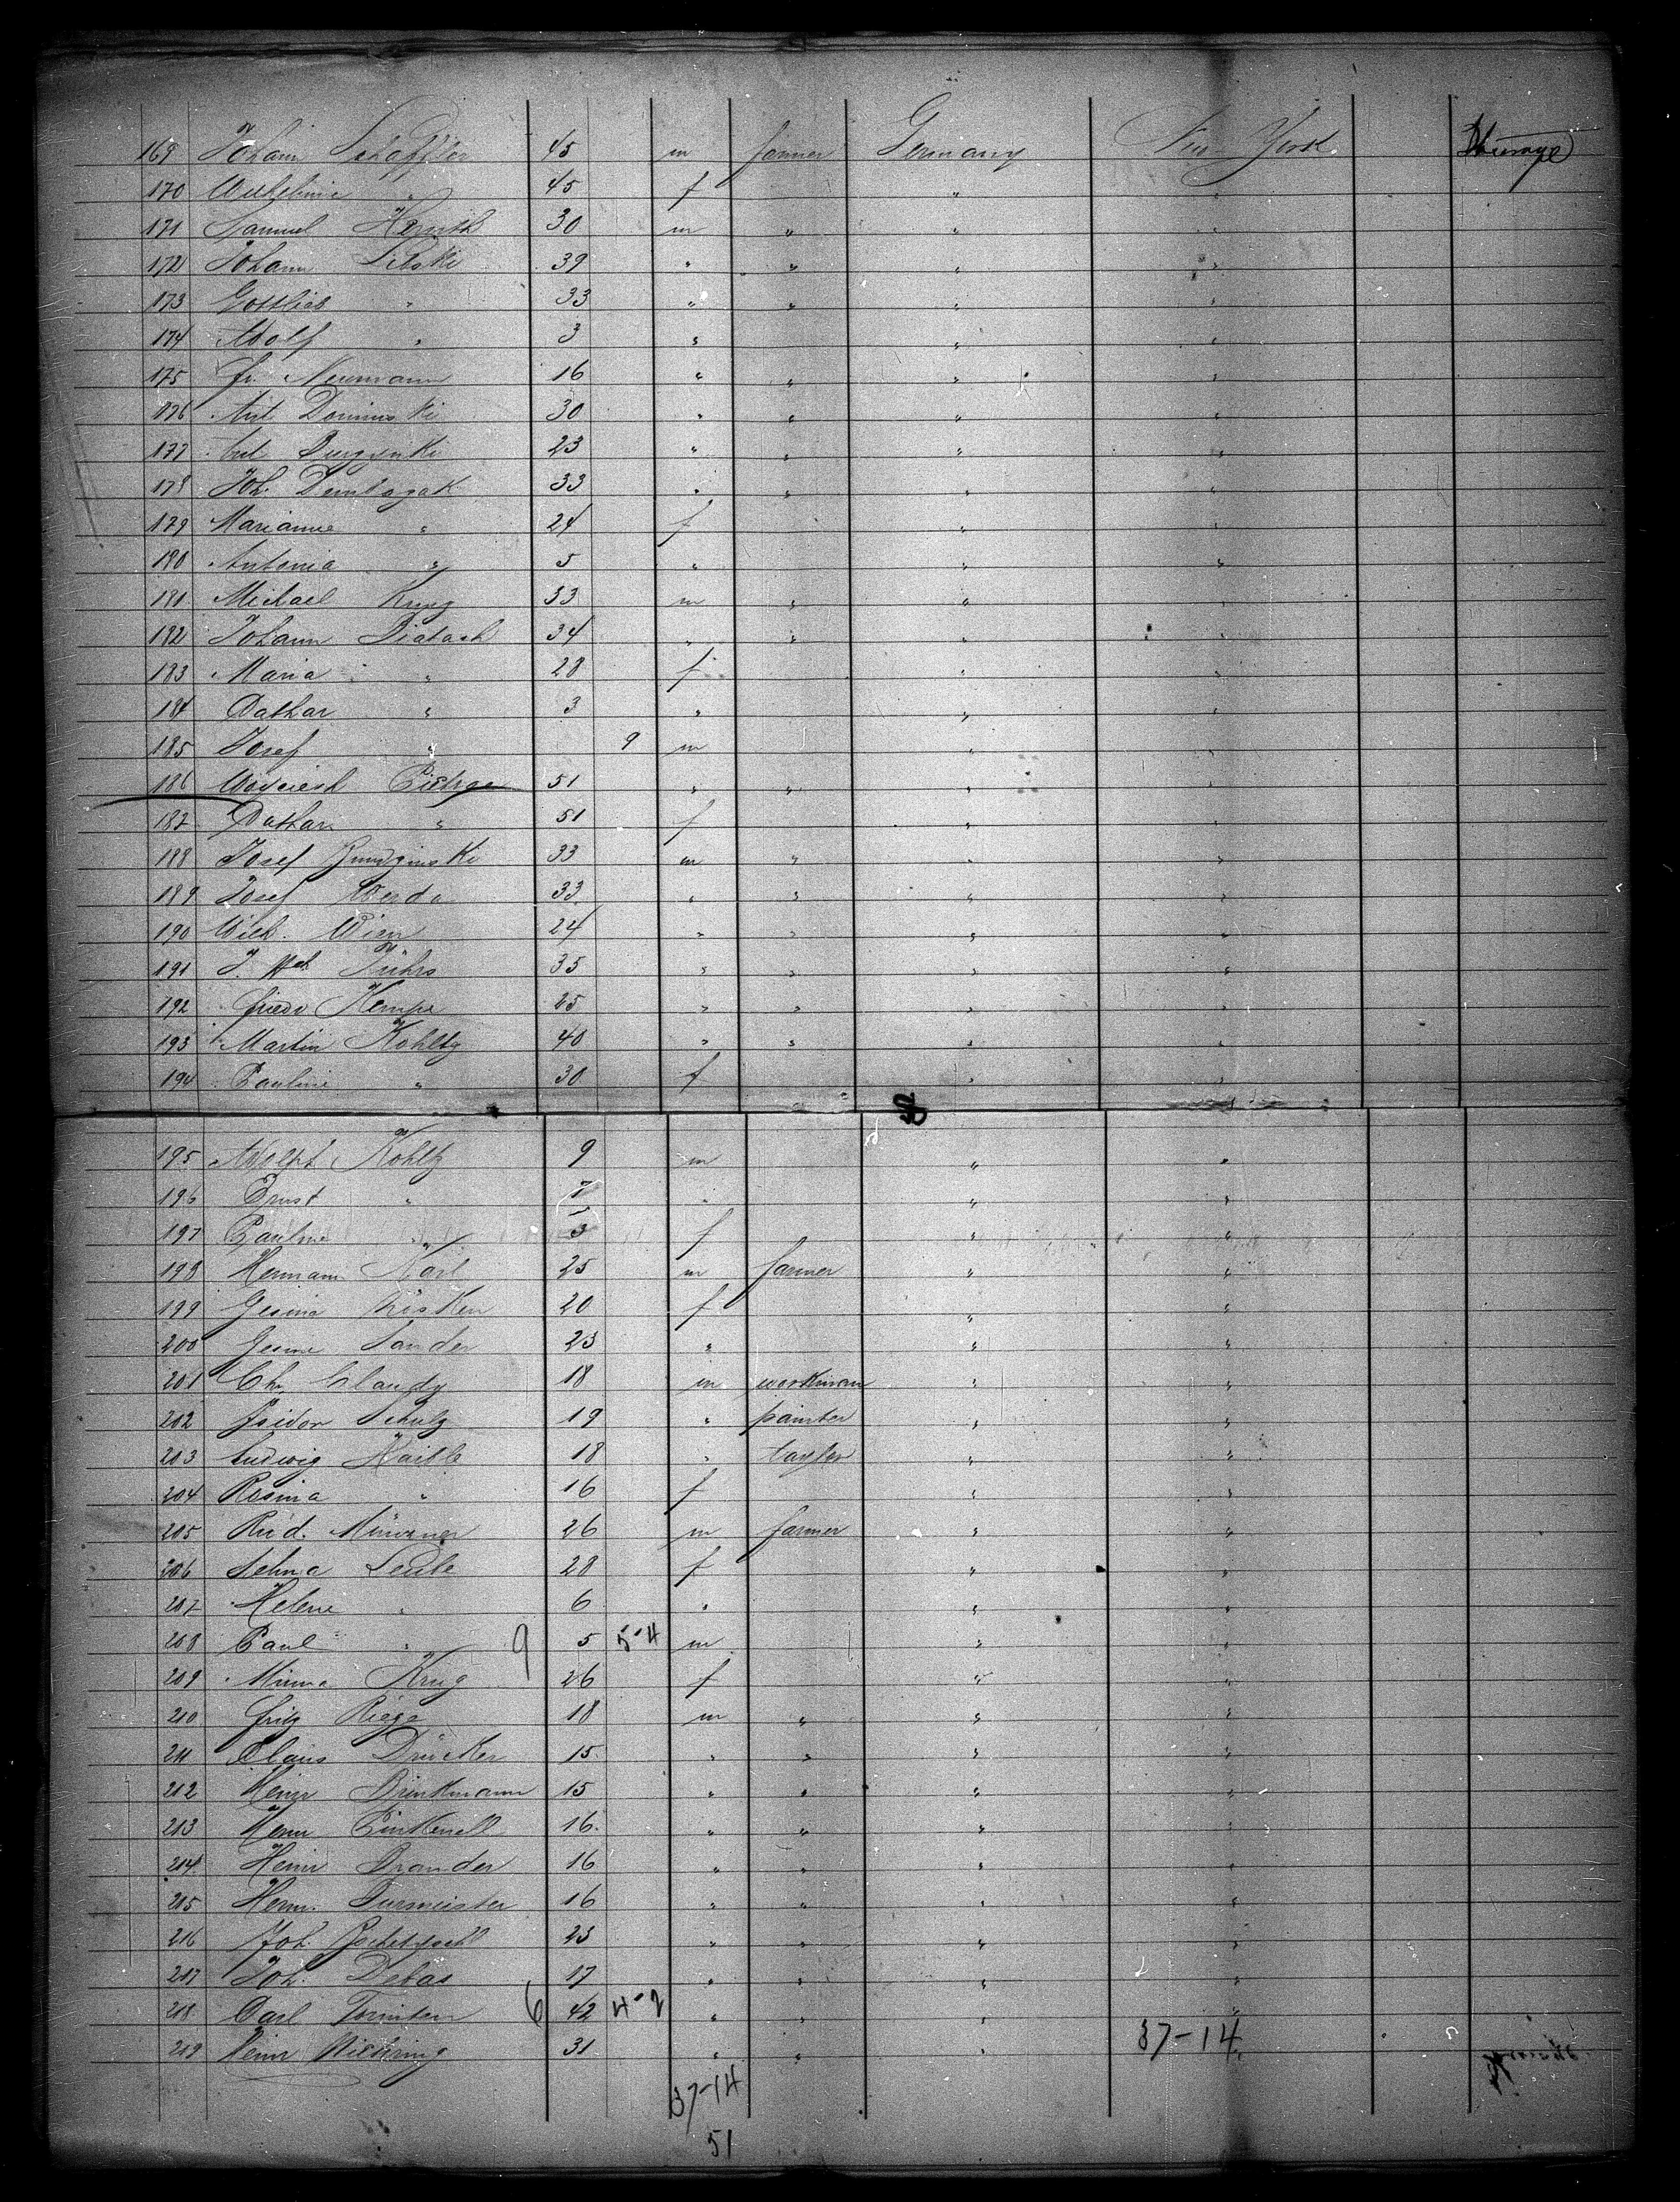 169 Johann Schäffler 45 m farmer Germany New York. Steerage
170 Wilhelmine " 45 f " "
171 Samuel 30 m " " "
172 Johann 39 " " " "
173 Gottlieb " 33 " " " "
174 Adolf " 3 " " "
175 Fr. Neumann 16 " " " "
176 Ant Dominski 30 " " " "
177 23 " " " "
178 Joh. 33 " " " "
179 Marianne " 24 f " "
180 Antonia " 5 " " "
181 Michael Krug 33 m " " "
182 Johann 34 " " " "
183 Maria " 28 f " "
184 Dathar " 3 " " "
185 Josef " 9 m " "
186 51 " " " "
187 Dathar " 51 f " "
188 Josef 33 m " " "
189 Josef Werda 33 " " " "
190 Wilh. Wien 24 " " " "
191 J. Hch Führs 35 " " " "
192 Friedr Kempe 25 " " " "
193 Martin Kohltz 40 " " " "
194 Pauline " 30 f " "
195 Adolph Kohltz 9 m " "
196 Ernst " 7 " " "
197 Pauline " 3 f " "
198 Hermann Karl 25 m farmer " "
199 Gesina 20 f " "
200 Gesine Sander 23 " " "
201 Chr. Claudy 18 m workman " "
202 Isidor Schulz 19 " painter " "
203 Ludwig Haible 18 " taylor " "
204 Rosina " 16 f " "
205 Rud. 26 m farmer " "
206 Selma 28 f " "
207 Helene " 6 " " "
208 Paul " 9 5 5-4 m " "
209 Minna Krug 26 f " "
210 Fritz Riege 18 m " " "
211 Claus Drücker 15 " " " "
212 Heinr Brinkmann 15 " " " "
213 Herm Pinkenell 16 " " " "
214 Heinr Brander 16 " " " "
215 Herm. Burmeister 16 " " " "
216 Joh. 23 " " " "
217 Joh. Debas 17 " " " "
218 Carl 6 42 4-2 " " "
219 Heinr 31 " " " 37-14
37-14
51